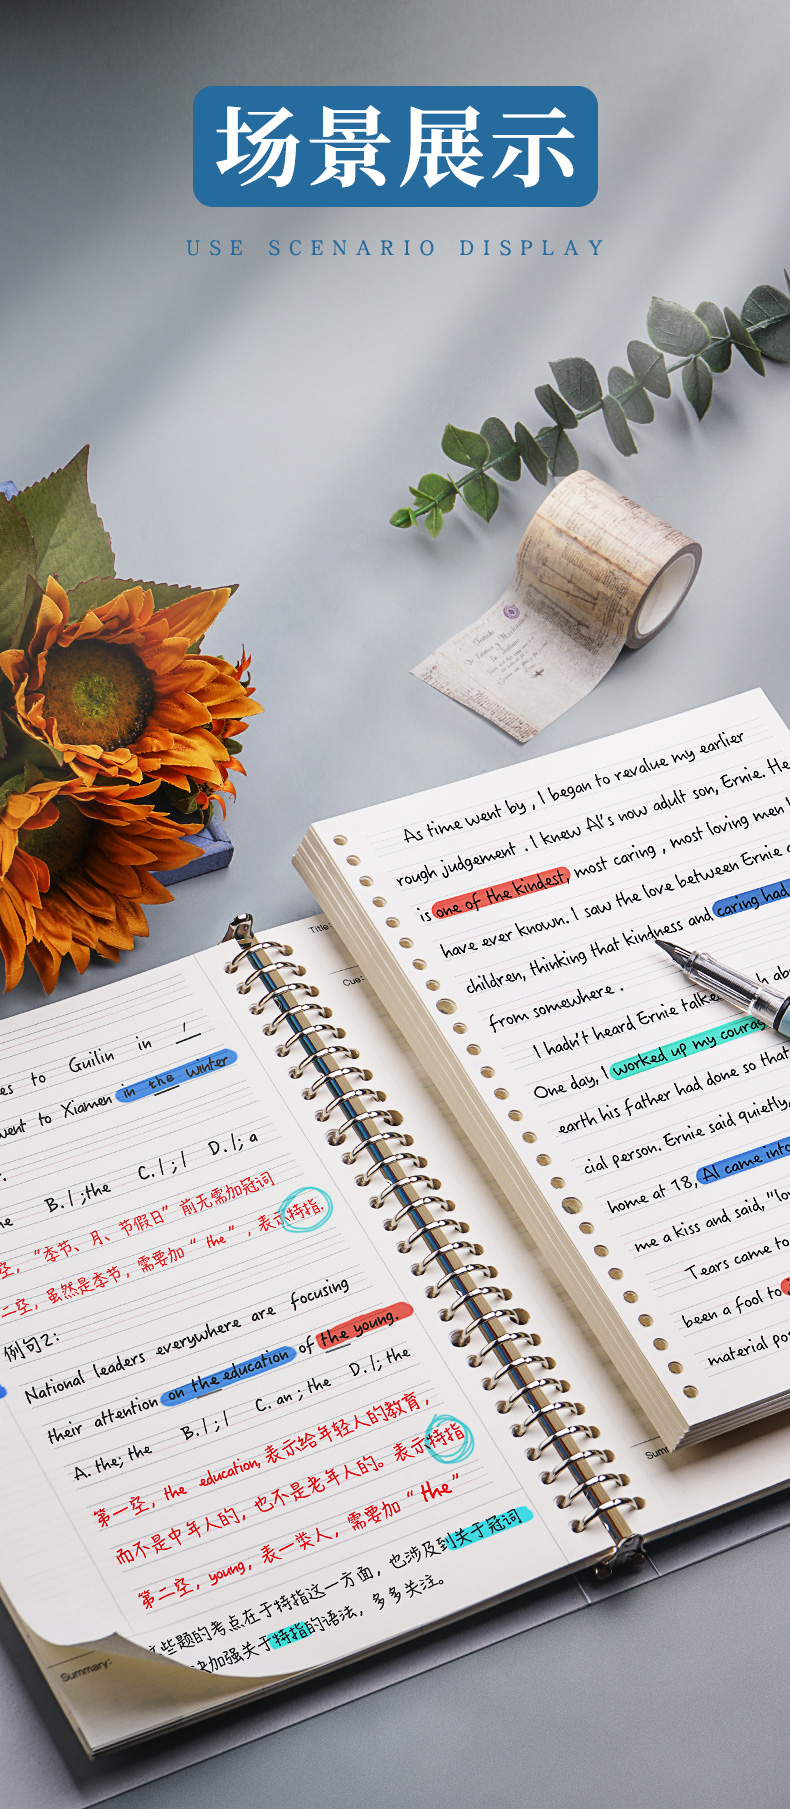 场景展示
USE SCENARIO DISPLAY
As time went by , I began to revalue my earlier
rough judgement . I knew Al's now adult son, Ernie. He
is one of the kindest, most caring , most loving men
have ever known. I saw the love between Ernie
children, thinking that kindness and caring had
from somewhere .
I hadn't heard Ernie talked
One day, I worked up my courag
earth his father had done so that
cial person. Ernie said quietly,
home at 18, Al came into
me a kiss and said, "lo
Tears came to
been a fool to
material pos
Title:
Cue:
es to Guilin in /
went to Xiamen in the winter
B. / ;the C. / ; / D. /; a
空，“季节、月、节假日”前无需加冠词
二空，虽然是季节，需要加“ the ”，表示特指.
例句2:
National leaders everywhere are focusing
their attention on the education of the young.
A. the; the B. / ; / C. an ; the D. /; the
第一空，the education, 表示给年轻人的教育，
而不是中年人的，也不是老年人的。表示特指
第二空，young, 表一类人，需要加“the”
这些题的考点在于特指这一方面，也涉及到关于冠词
加强关于特指的语法，多多关注。
Summary:
Summ